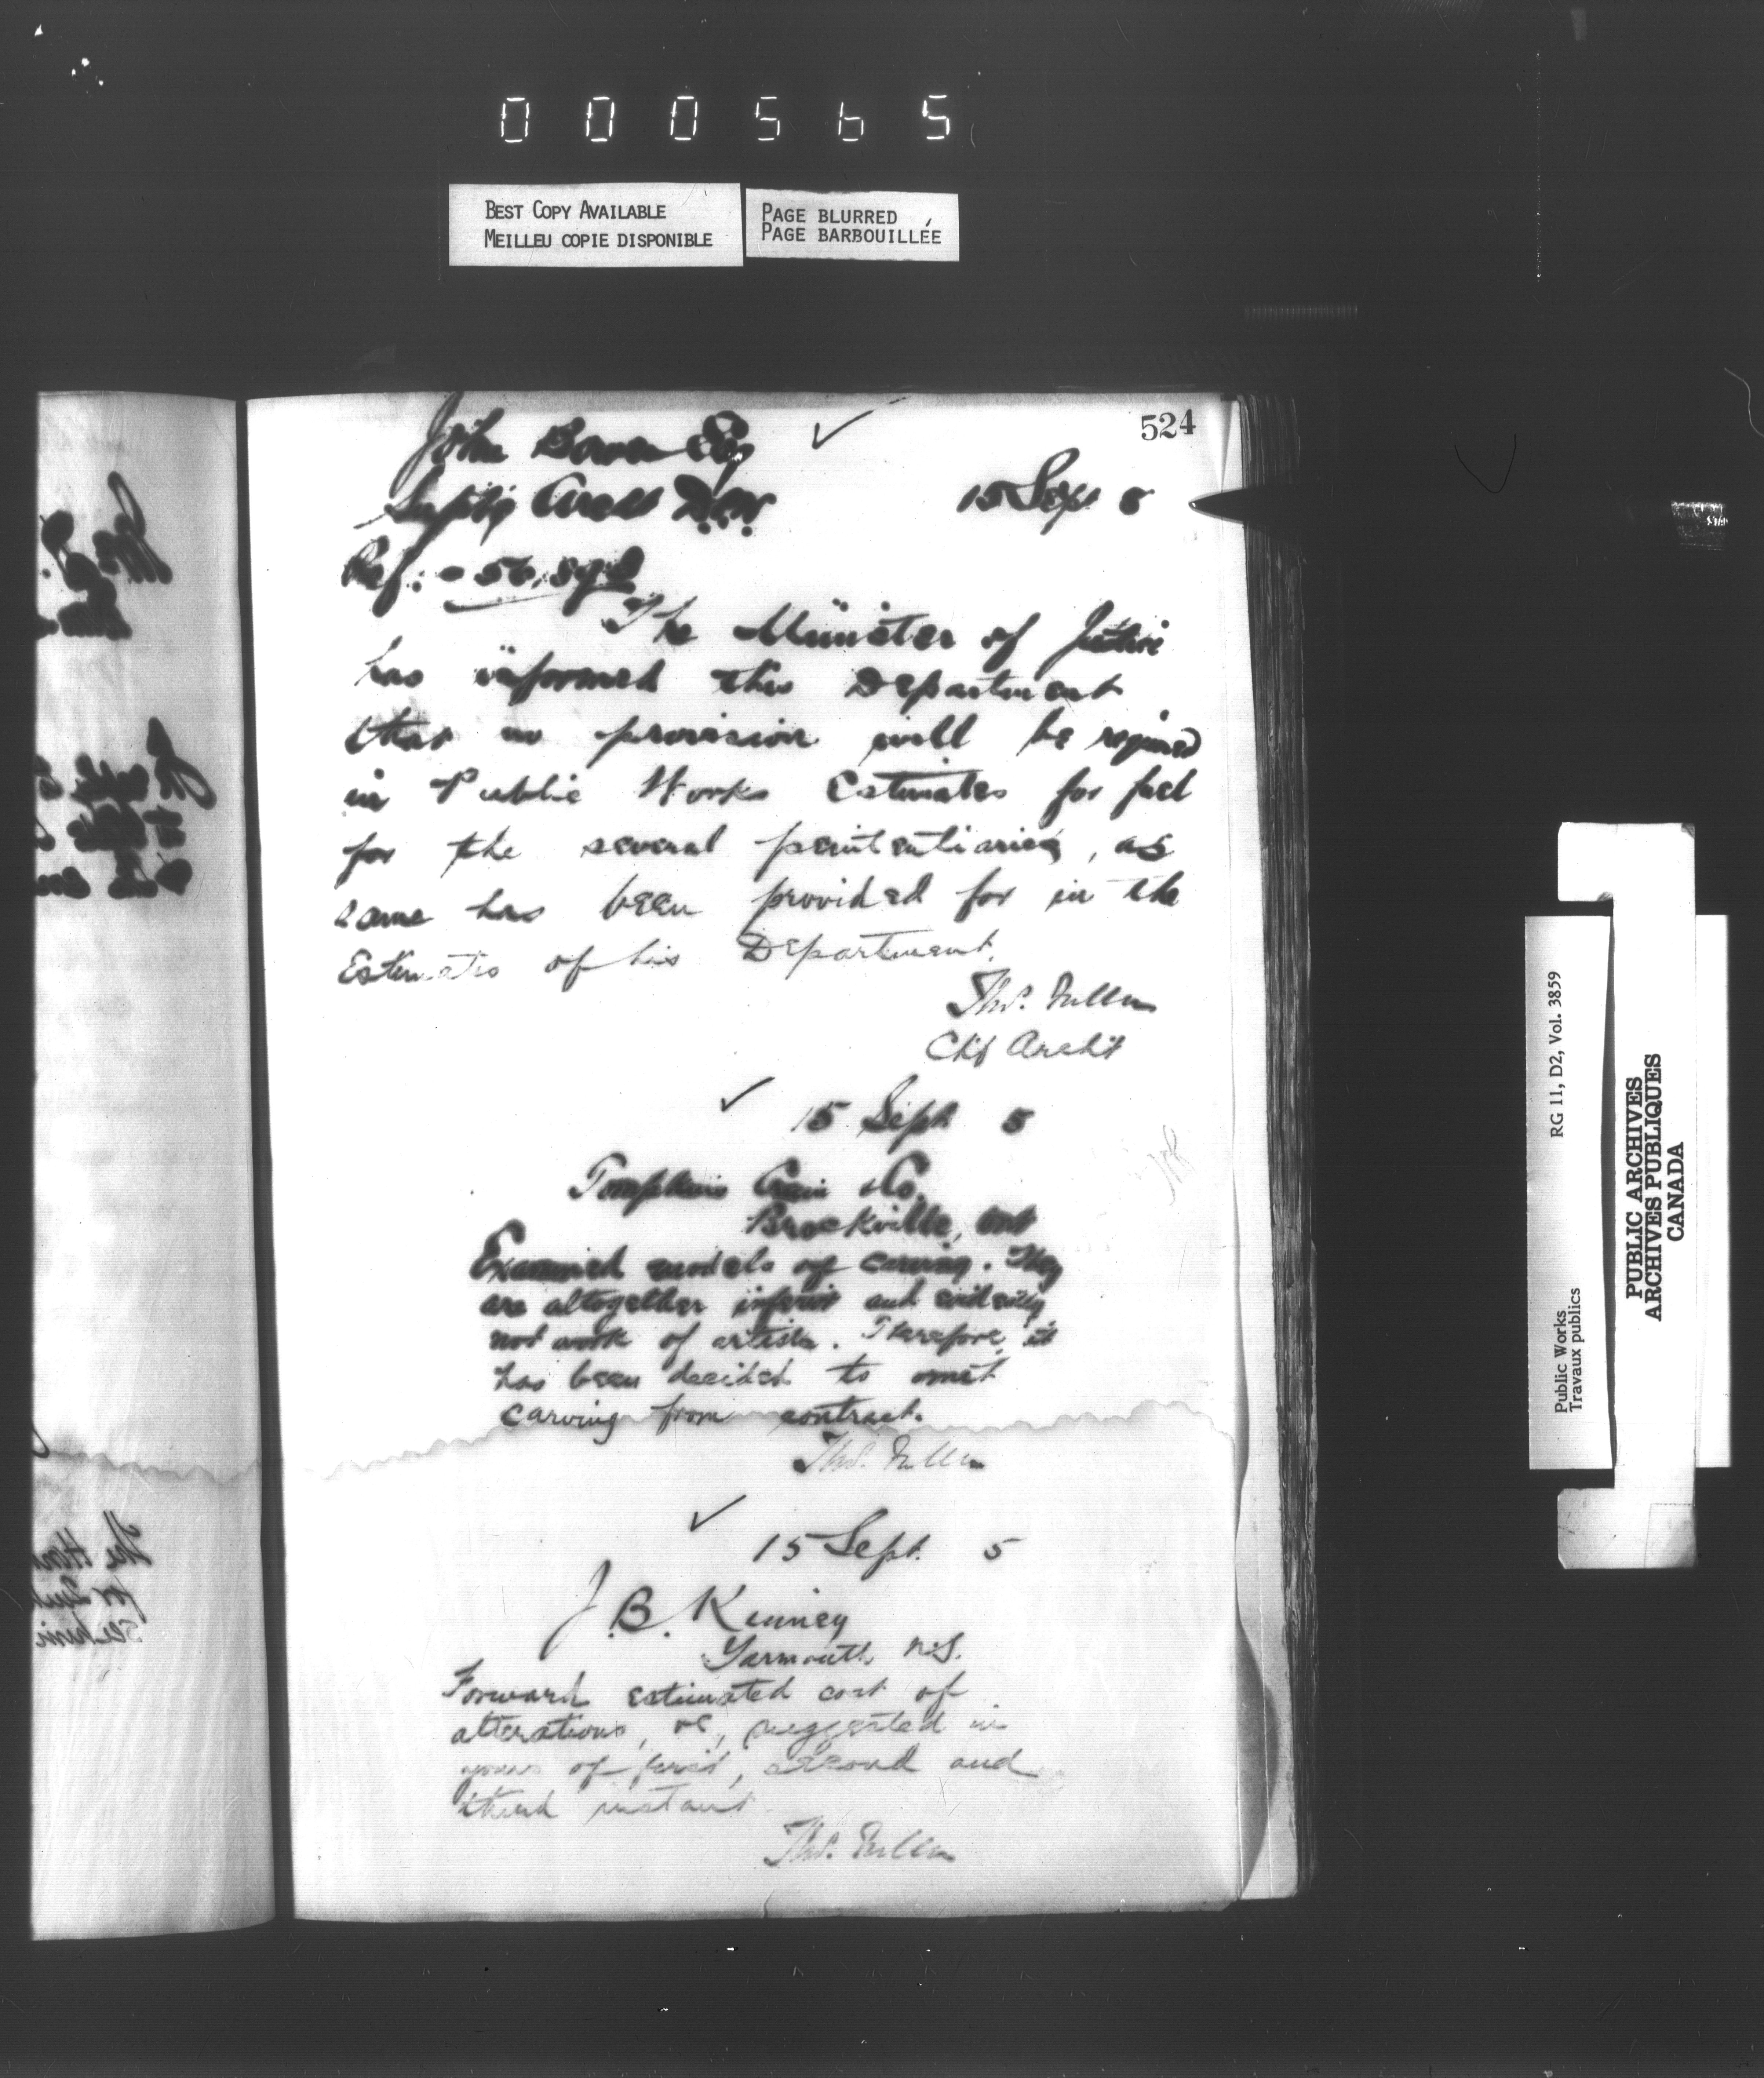 000565
BEST COPY AVAILABLE
MEILLEU COPIE DISPONIBLE
PAGE BLURRED
PAGE BARBOUILLÉE
524
John Bowes Esq
Supt'g Archt D.P.W. 15 Sept 5
Ref: - 56.592
The Minister of Justice
has informed this Department
that no provision will be required
in Public Works Estimates for fuel
for the several penitentiaries, as
same has been provided for in the
Estimates of his Department.
Thos. Fuller
Chf Archt
15 Sept 5
Tompkins & Co.
Brockville, Ont
Examined models of carving. They
are altogether inferior and evidently
not work of artists. Therefore, it
has been decided to omit
carving from contract.
Thos. Fuller
15 Sept. 5
J.B. Kinney
Yarmouth N.S.
Forward estimated cost of
alterations, &c, suggested in
yours of first, second and
third instant
Thos. Fuller
RG 11, D2, Vol. 3859
Public Works
Travaux publics
PUBLIC ARCHIVES
ARCHIVES PUBLIQUES
CANADA